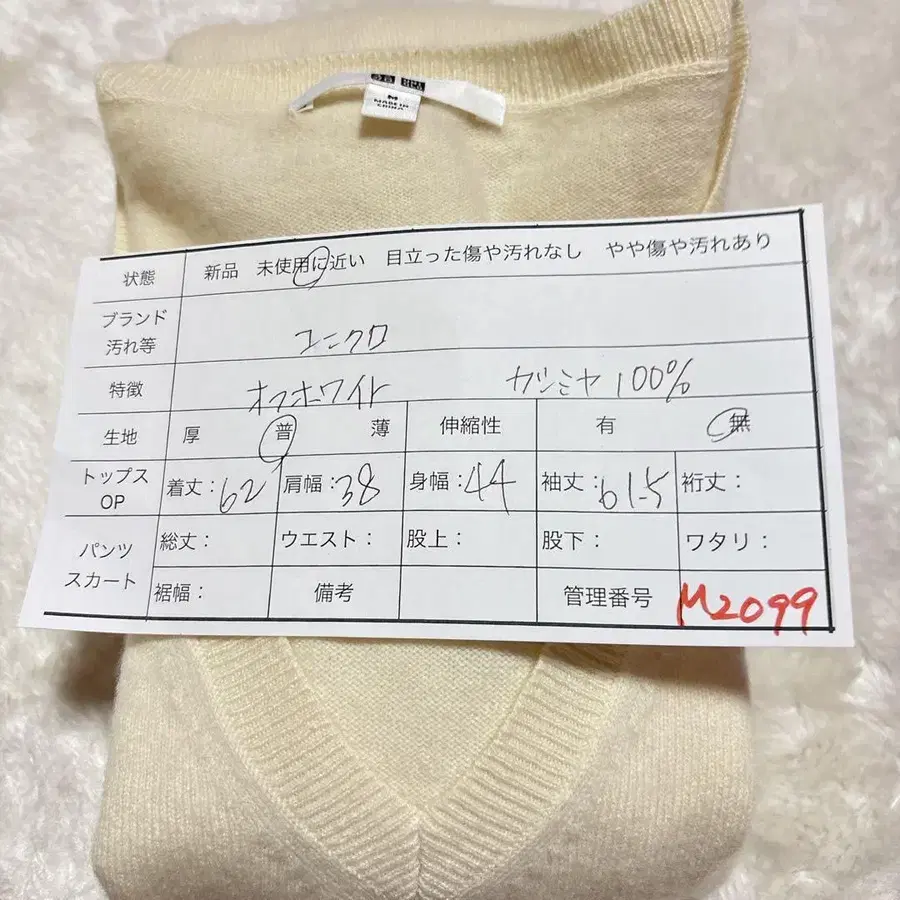 M
MADE IN
CHINA
状態 新品 未使用に近い 目立った傷や汚れなし やや傷や汚れあり
ブランド
汚れ等 ユニクロ
特徴 オフホワイト カシミヤ100%
生地 厚 普 薄 伸縮性 有 無
トップス
OP 着丈：62 肩幅：38 身幅：44 袖丈：61.5 裄丈：
パンツ
スカート 総丈： ウエスト： 股上： 股下： ワタリ：
裾幅： 備考 管理番号 M2099